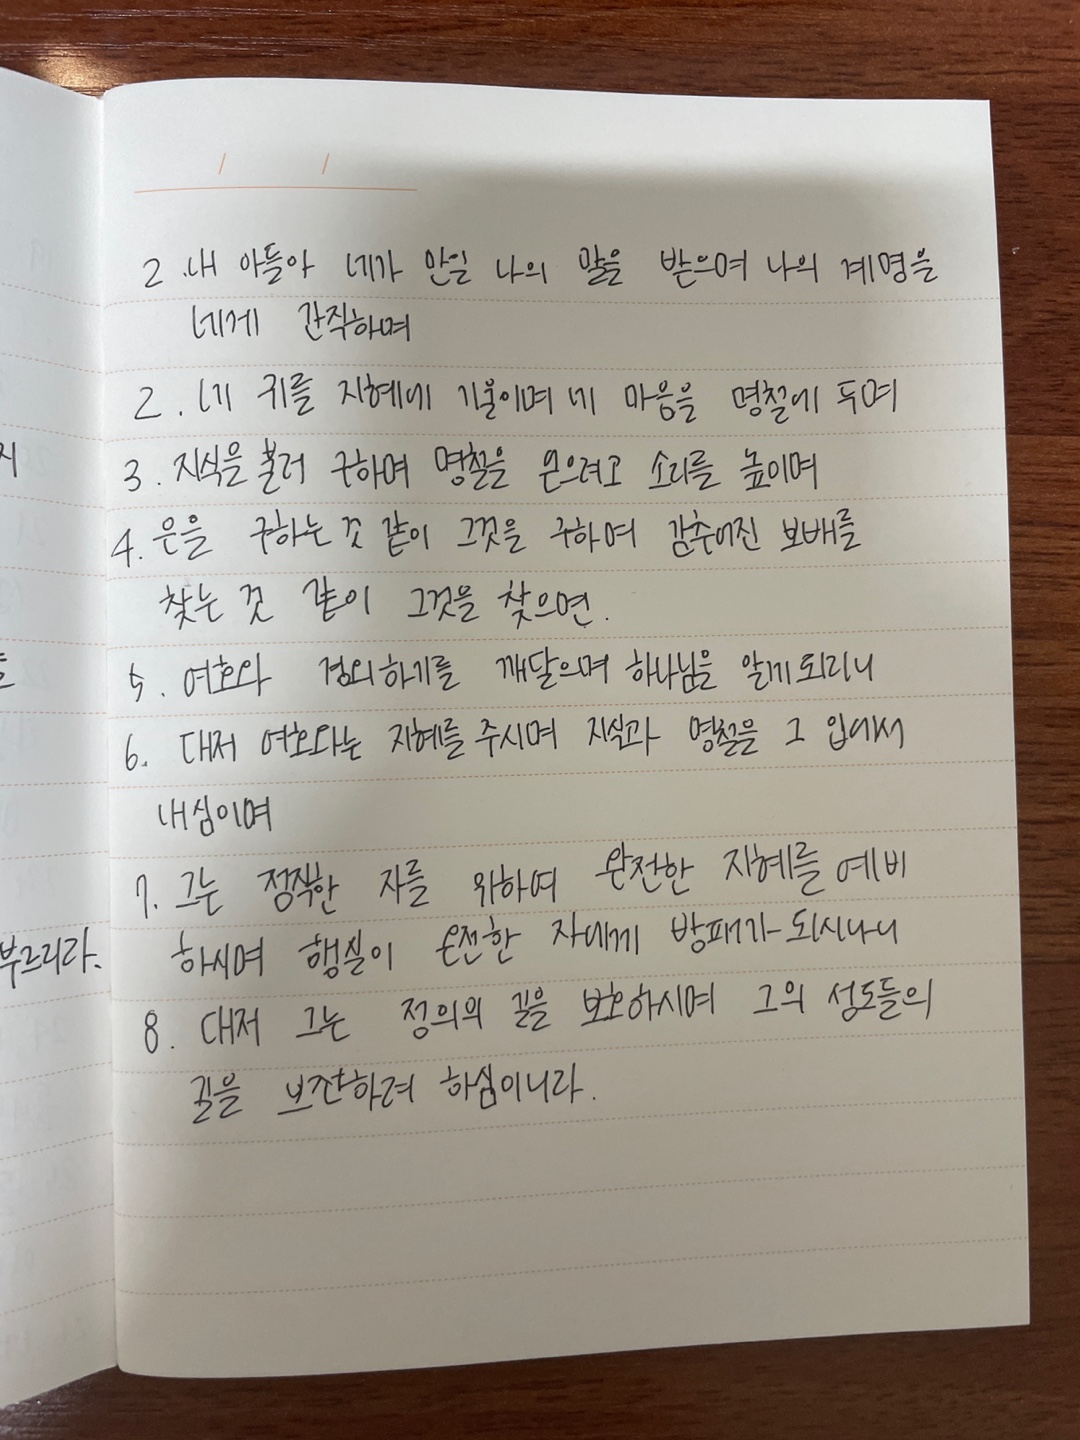 지
부르리라.
2. 내 아들아 네가 만일 나의 말을 받으며 나의 계명을
네게 간직하며
2. 네 귀를 지혜에 기울이며 네 마음을 명철에 두며
3. 지식을 불러 구하며 명철을 얻으려고 소리를 높이며
4. 은을 구하는 것 같이 그것을 구하여 감추어진 보배를
찾는 것 같이 그것을 찾으면.
5. 여호와 경외하기를 깨달으며 하나님을 알게 되리니
6. 대저 여호와는 지혜를 주시며 지식과 명철을 그 입에서
내심이며
7. 그는 정직한 자를 위하여 완전한 지혜를 예비
하시며 행실이 온전한 자에게 방패가 되시나니
8. 대저 그는 정의의 길을 보호하시며 그의 성도들의
길을 보전하려 하심이니라.